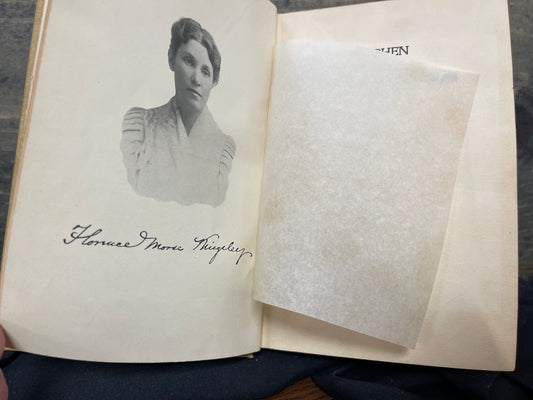 Florence Morse Kingsley
PHEN